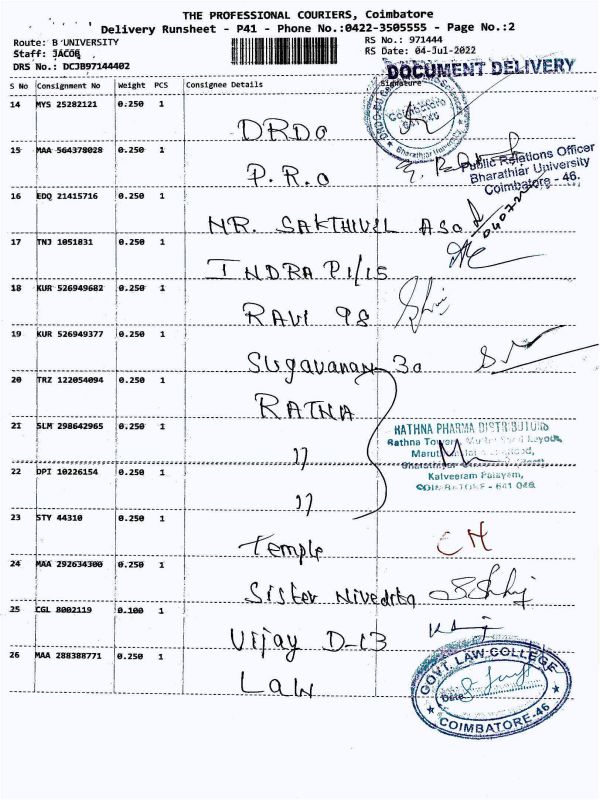 THE PROFESSIONAL COURIERS, Coimbatore
Delivery Runsheet - P41 - Phone No.:0422-3505555 - Page No.:2
Route: B UNIVERSITY
RS No.: 971444
Staff: JACOB
RS Date: 04-Jul-2022
DRS No.: DCJB97144402
DOCUMENT DELIVERY
S No Consignment No Weight PCS Consignee Details Signature
14 MYS 25282121 0.250 1
DRDO
COIMBATORE
641 046
Bharathiar University
15 MAA 564378028 0.250 1
P.R.O
Public Relations Officer
Bharathiar University
Coimbatore - 46.
16 EDQ 21415716 0.250 1
MR. SAKTHIVEL ASO
040722
17 TNJ 1051831 0.250 1
INDRA P1/15
18 KUR 526949682 0.250 1
RAVI 98
19 KUR 526949377 0.250 1
Sugavanan 30
20 TRZ 122054094 0.250 1
RATNA
21 SLM 298642965 0.250 1
RATHNA PHARMA DISTRIBUTORS
Rathna Tower
Layout,
Kalveeram Palayam,
COIMBATORE - 641 046.
22 DPI 10226154 0.250 1
23 STY 44310 0.250 1
Temple
24 MAA 292634300 0.250 1
Sister Nivedita
25 CGL 8002119 0.100 1
Vijay D-13
26 MAA 288388771 0.250 1
LAW
GOVT. LAW COLLEGE
Date
COIMBATORE-46